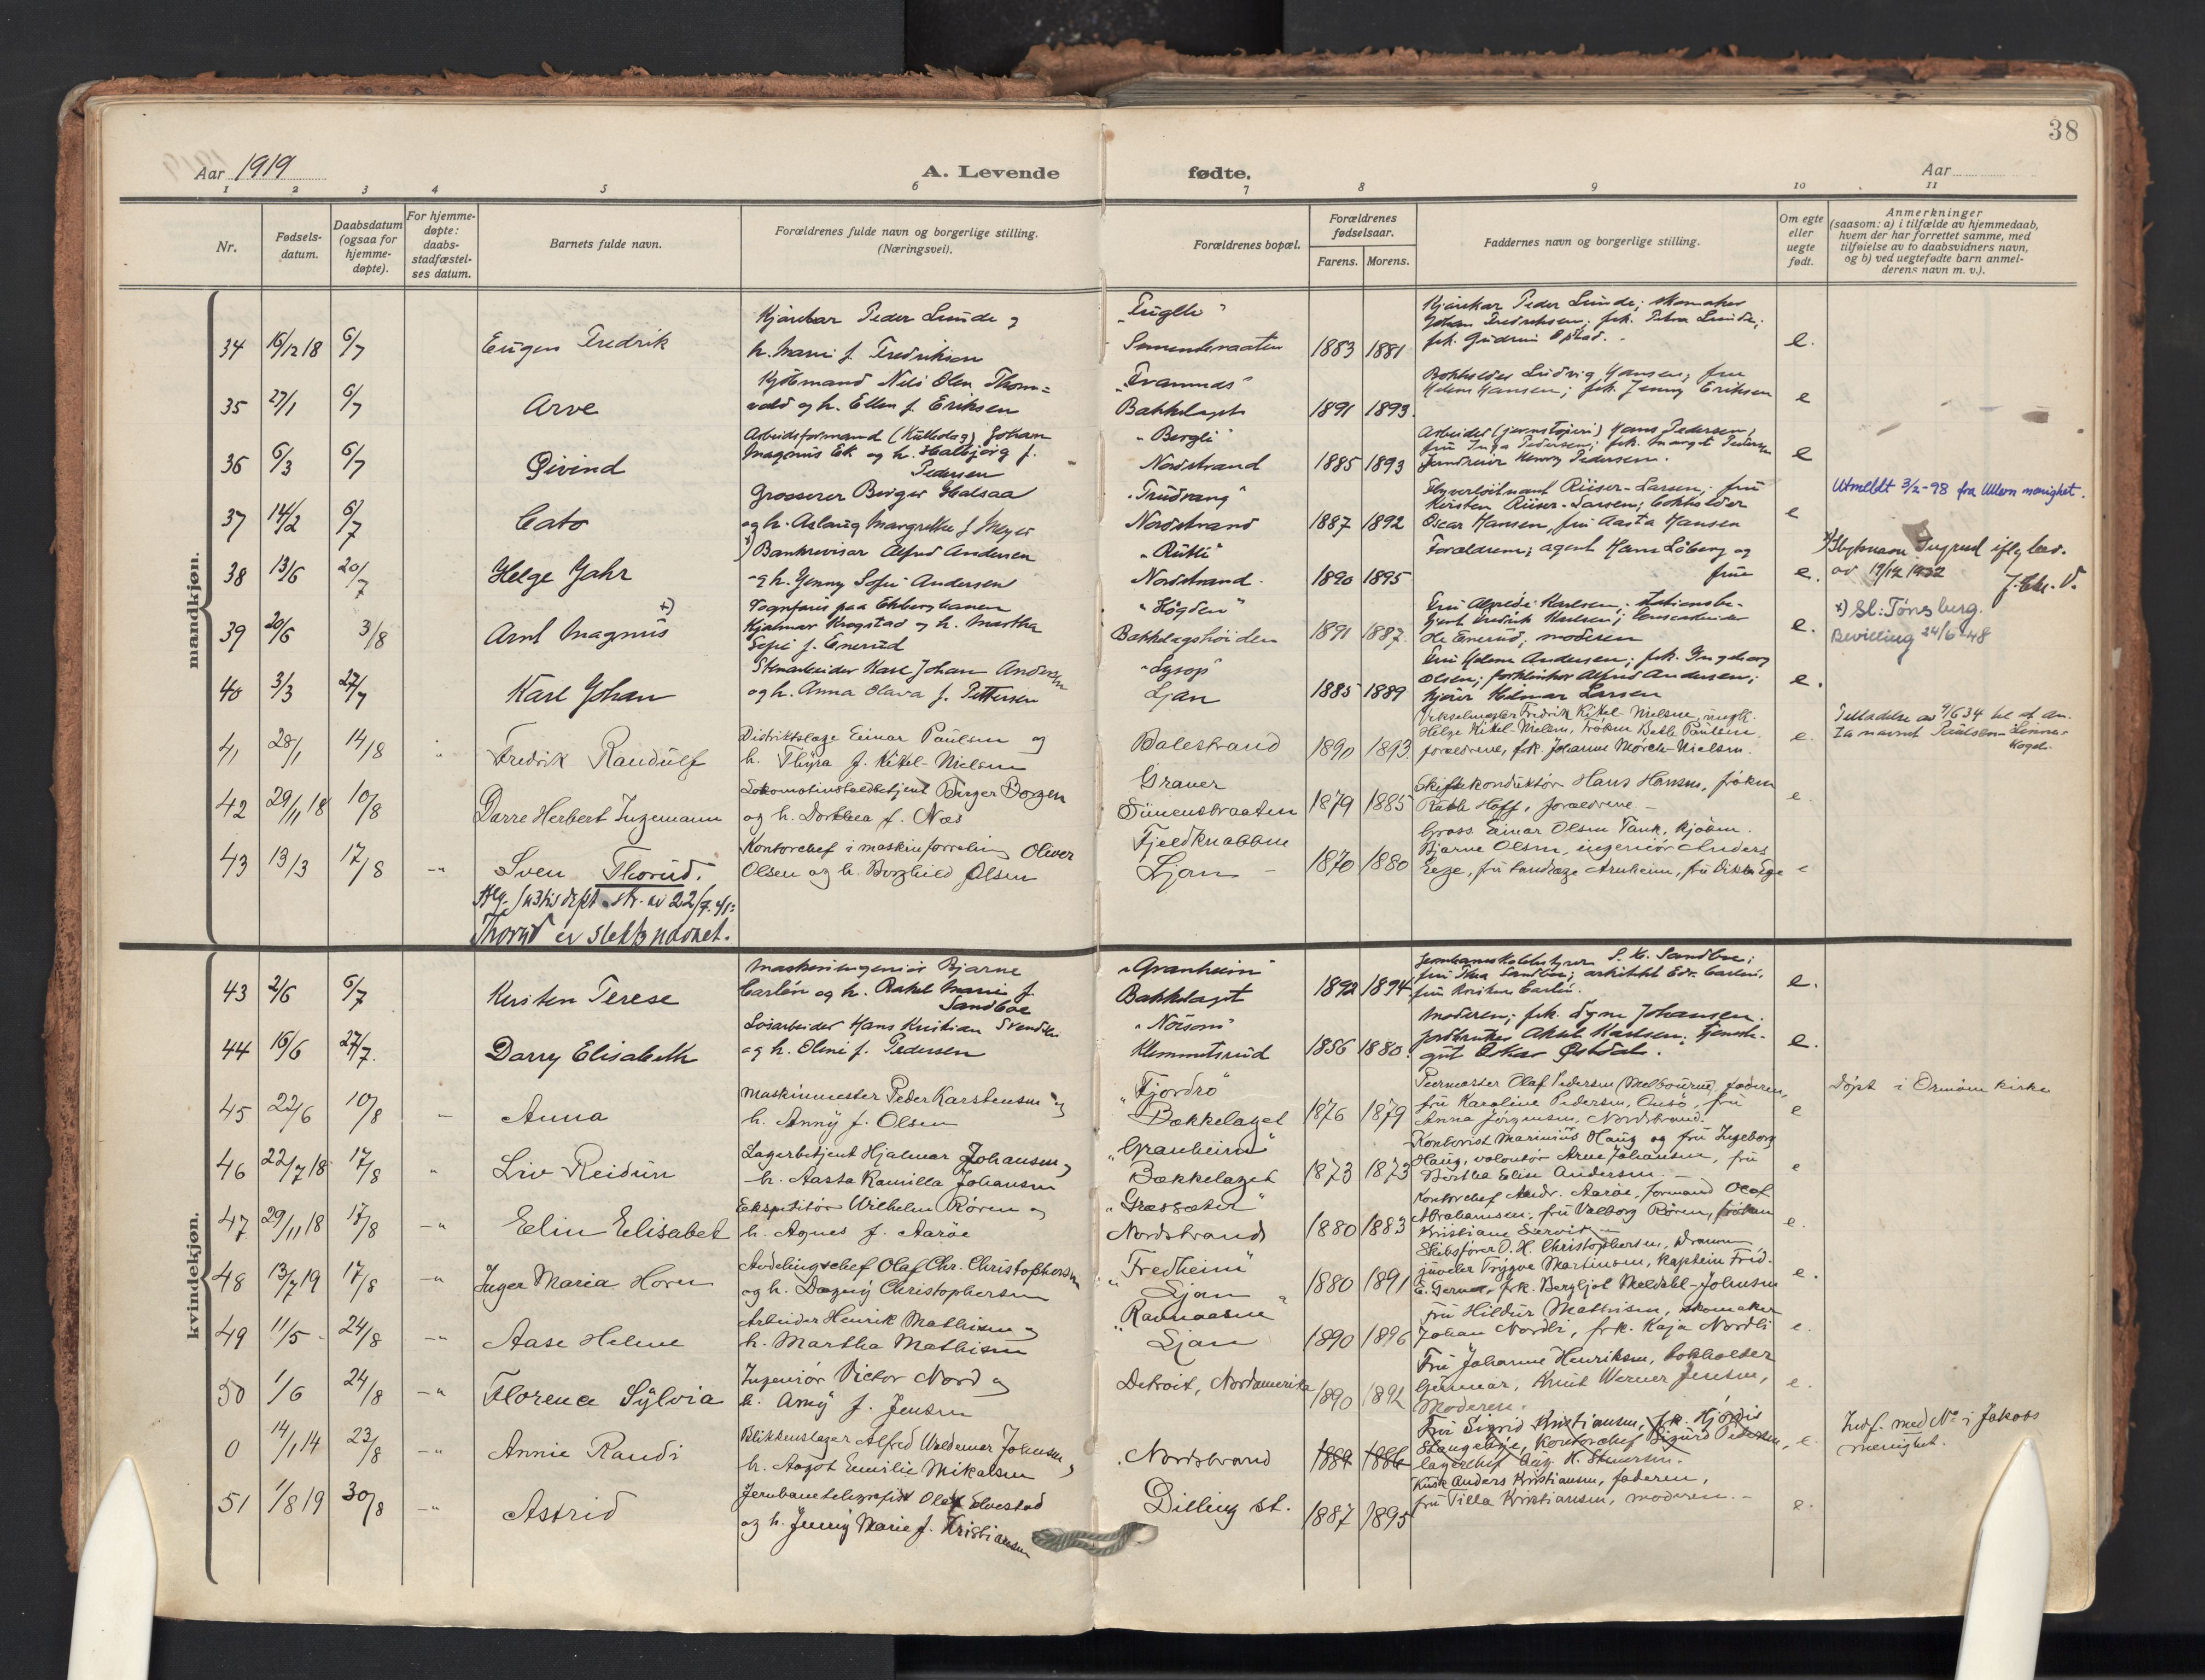 38
Aar 1919
A. Levende fødte.
Aar
1 2 3 4 5 6 7 8 9 10 11
Nr.
Fødsels-
datum.
Daabsdatum
(ogsaa for
hjemme-
døpte).
For hjemme-
døpte:
daabs-
stadfæstel-
ses datum.
Barnets fulde navn.
Forældrenes fulde navn og borgerlige stilling.
(Næringsvei).
Forældrenes bopæl.
Forældrenes
fødselsaar.
Farens. Morens.
Faddernes navn og borgerlige stilling.
Om egte
eller
uegte
født.
Anmerkninger
(saasom: a) i tilfælde av hjemmedaab,
hvem der har forrettet samme, med
tilføielse av to daabsvidners navn,
og b) ved uegtefødte barn anmel-
derens navn m. v.).
mandkjøn.
34 15/12 18 6/7 Eugen Fredrik
Peder Lunde og
h. Marie f. Fredriksen
1883 1881
Peder Lunde; skomaker
Johan Fredriksen; frk. Petra Lunde;
frk. Gudrun
e.
35 27/1 6/7 Arve
Kjøbmand Nils Olen Thom=
vald og h. Ellen f. Eriksen
"Framnæs"
Bakkelaget
1891 1893.
Bokholder Ludvig Hansen; fru
Helene Hansen; frk. Jenny Eriksen
e
36 6/3 6/7 Øivind
Arbeidsformand Johan
Magnus Ek og h. Halbjørg f.
Pedersen
"Bergli"
Nordstrand
1885 1893
Arbeider Hans Pedersen;
fru Inga Pedersen; frk. Margit Pedersen
Henry Pedersen.
e
37 14/2 6/7 Cato
Grosserer Birger Halsaa
og h. Aslaug Margrethe f Meyer
"Trudvang"
Nordstrand
1887 1892
Flyverløitnant Riiser-Larsen; fru
Kirsten Riiser-Larsen; bokholder
Oscar Hansen, fru Aasta Hansen
e
Utmeldt 3/2-98 fra Ullern menighet.
38 13/6 20/7 Helge Jahr
x) Bankrevisor Alfred Andersen
og h. Jenny Sofie Andersen
"Rütli"
Nordstrand.
1890 1895
Forældrene; agent Hans Löberg og
frue
e.
av 19/12 1932
39 20/6 3/8 Arnt Magnus x)
Vognfører paa Ekbergbanen
Hjalmar Krogstad og h. Martha
Sofie f. Enerud
"Høgden"
Bakkelagshöiden
1891 1887.
Fru Alfrede Karlsen; stationsbe-
tjent Fredrik Karlsen;
Ole Enerud; moderen
e.
x) Sl: Tønsberg.
Bevilling 24/6-48
40 3/3 27/7 Karl Johan
Stenarbeider Karl Johan Andersen
og h. Anna Olava f. Pettersen
Ljan
1885 1889
Fru Helene Andersen; frk. Ingeborg
Olsen; Alfred Andersen;
Hilmar Larsen
e.
41 28/1 14/8 Fredrik Randulf
Distriktslæge Einar Paulsen og
h. Thyra f. Kikel-Nielsen
Balestrand
1890 1893.
Vekselmegler Fredrik Kikel-Nielsen,
Helge Kikel-Nielsen, frøken Betle Paulsen
forældrene, frk. Johanne Mørch-Nielsen.
e.
Tilladelse av 9/6 34 til at an-
ta navnet Paulsen-
42 29/11 18 10/8 Darre Herbert Ingemann
Birger Borgen
og h. Dorthea f. Næs
Graner
Simensbraaten
1879 1885
Skiftekonduktør Hans Hansen, frøken
Hoff, forældrene –
e
43 13/3 17/8 –" Sven Thorud.
Kontorchef i maskinforretning Oliver
Olsen og h. Borghild Olsen
Fjeldknabben
Ljan –
1870 1880
Gross. Einar Olsen Tank, frøken
Bjarne Olsen, ingeniør Anders
Eege, fru tandlæge Arnheim, fru
e
av 22/9.41:
Thorud er slektsnavnet.
kvindekjøn.
43 2/6 6/7 Kirsten Terese
Maskiningeniør Bjarne
Carlén og h. Rakel Marie f.
Sandboe
"Granheim"
Bakkelaget
1892 1894
S. K. Sandboe;
fru Thea Sandboe; arkitekt Edv. Carlén;
fru Carlén.
e.
44 16/6 27/7. Darry Elisabeth
Hans Kristian Svendsen
og h. Oline f. Pedersen
Klemmetsrud
1856 1880.
Moderen; frk. Signe Johansen.
Jordbruker Aksel Karlsen; tjeneste-
gut Oskar Østdal.
e.
45 22/6 10/8 – Anna
Maskinmester Peder Karstensen og
h. Anny f. Olsen
"Fjordro"
Bækkelaget
1876 1879
Olaf Pedersen (Melbourne), faderen,
fru Karoline Pedersen, Onsö, fru
Anna Jörgensen, Nordstrand.
e
Döpt i Ormöen kirke
46 22/7 18 17/8 " Liv Reidun
Lagerbetjent Hjalmar Johansen,
h. Aasta Kamilla Johansen
"Granheim"
Bækkelaget
1873 1873
Kontorist Marinius Haug og fru Ingeborg
Haug, volontør Arne Johansen, fru
Bertha Elise Andersen –
e
47 29/11 18 17/8 –" Elin Elisabet
Ekspeditör Wilhelm Rören og
h. Agnes f. Aaröe
Nordstrand
1880 1883
Kontorchef Andr. Aaröe, formand Olaf
Abrahamsen, fru Valborg Rören, fröken
Kristiane
e.
48 13/7 19 17/8 –" Inger Maria Horn
Avdelingschef Olaf Chr. Christophersen
og h. Dagny Christophersen
"Fredheim"
" Ljan "
1880 1891
Skibsförer O. H. Christophersen, Drammen
juveler Trygve Martinsen, kaptein Frid.
C. Gerner, frk. Bergljot Meldahl-Johnsen
e.
49 11/5 – 24/8 –" Aase Helene
Arbeider Henrik Mathisen og
h. Martha Mathisen
"Ravnaasen
Ljan
1890 1896
Fru Hildur Mathisen, skomaker
Johan Nordli, frk. Kaja Nordli
e.
50 1/6 24/8 –" Florence Sylvia
Ingeniør Victor Nord og
h. Amy f. Jensen
Detroit, Nordamerika
1890 1892
Fru Johanne Henriksen, bokholder
Gunnar, Knut Werner Jensen,
Moderen.
e.
0 14/1 14 23/8 –" Annie Randi
Blikkenslager Alfred Waldemar Johansen,
h. Aagot Emilie Mikalsen
Nordstrand
1884 1886
Fru Sigrid Kristiansen, frk. Hjördis
Stangebye, Kontorchef Sigurd Pedersen,
lagerchef Aug. K. Stenersen.
e.
Indf. med No i Jakobs
menighet.
51 1/8 19 30/8 –" Astrid
Jernbanetelegrafist Olaf Elvestad
og h. Jenny Marie f. Kristiansen
Dilling st.
1887 1895
Kusk Anders Kristiansen, faderen,
fru Tilla Kristiansen, moderen. –
e.